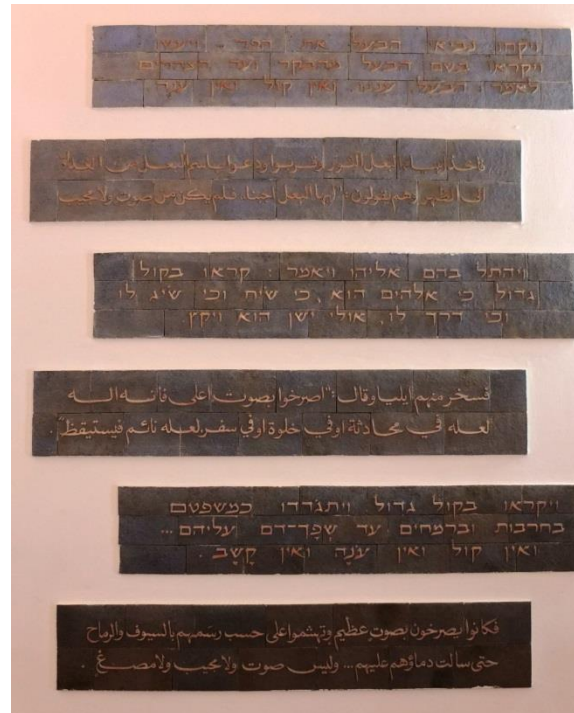 ויקחו נביאי הבעל את הפר . ויעשו .
ויקראו בשם הבעל מהבקר ועד הצהרים
לאמר : הבעל עננו . ואין קול ואין ענה .
فأخذ أنبياء البعل الثور وقربوا ودعوا باسم البعل من الغداة
الى الظهر وهم يقولون : "ايها البعل اجبنا . فلم يكن من صوت ولا مجيب
ויהתל בהם אליהו ויאמר : קראו בקול
גדול כי אלהים הוא , כי שיח וכי שיג לו
וכי דרך לו . אולי ישן הוא ויקץ
فسخر منهم ايليا وقال : "اصرخوا بصوت اعلى فانه اله
لعله في محادثة او في خلوة او في سفر لعله نائم فيستيقظ" .
ויקראו בקול גדול ויתגדדו כמשפטם
בחרבות וברמחים עד שְפָך־דם עליהם ...
ואין קול ואין עֹנֶה ואין קָשֶב .
فكانوا يصرخون بصوت عظيم وتهشموا على حسب رسمهم بالسيوف والرماح
حتى سالت دماؤهم عليهم ... وليس صوت ولا مجيب ولا مصغ .